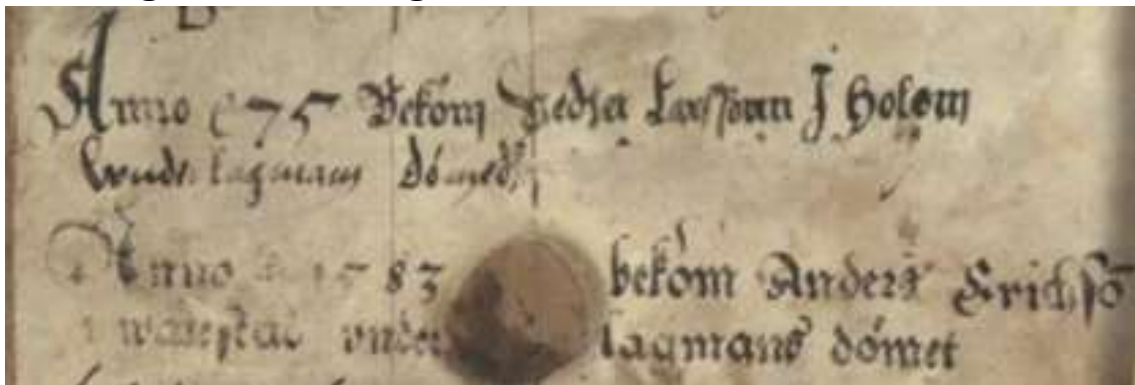 Anno 75 Bekóm Pedher Larsson J Holem
wnder lagmans dómedt
Anno 1583 bekóm Anders Erichsó
i wnder lagmans dómet